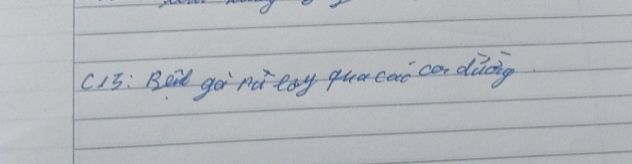 C13: Bệnh gà rù lây qua các con đường.